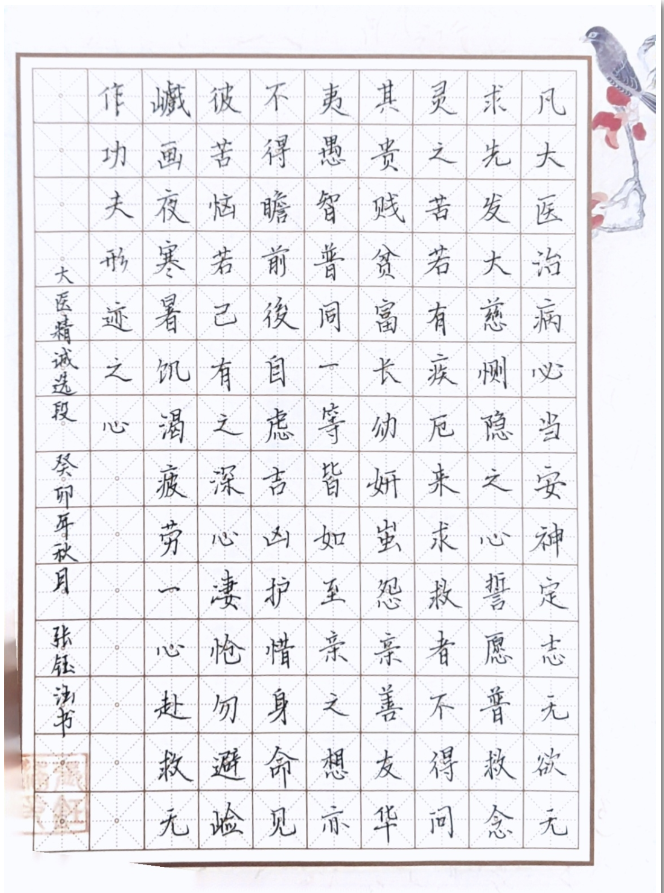 凡大医治病必当安神定志无欲无
求先发大慈恻隐之心誓愿普救念
灵之苦若有疾厄来求救者不得问
其贵贱贫富长幼妍蚩怨亲善友华
夷愚智普同一等皆如至亲之想亦
不得瞻前後自虑吉凶护惜身命见
彼苦恼若己有之深心凄怆勿避崄
巇画夜寒暑饥渴疲劳一心赴救无
作功夫形迹之心
大医精诚选段 癸卯年秋月 张钰涵书